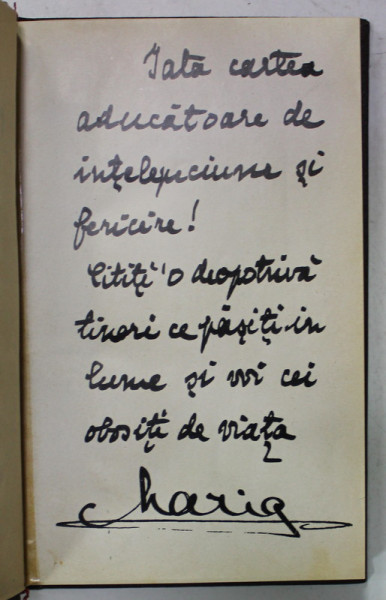 Iata cartea
aducătoare de
inţelepciune şi
fericire!
Citiţi'o deopotrivă
tineri ce păşiţi in
lume şi voi cei
obosiţi de viaţa
Marig